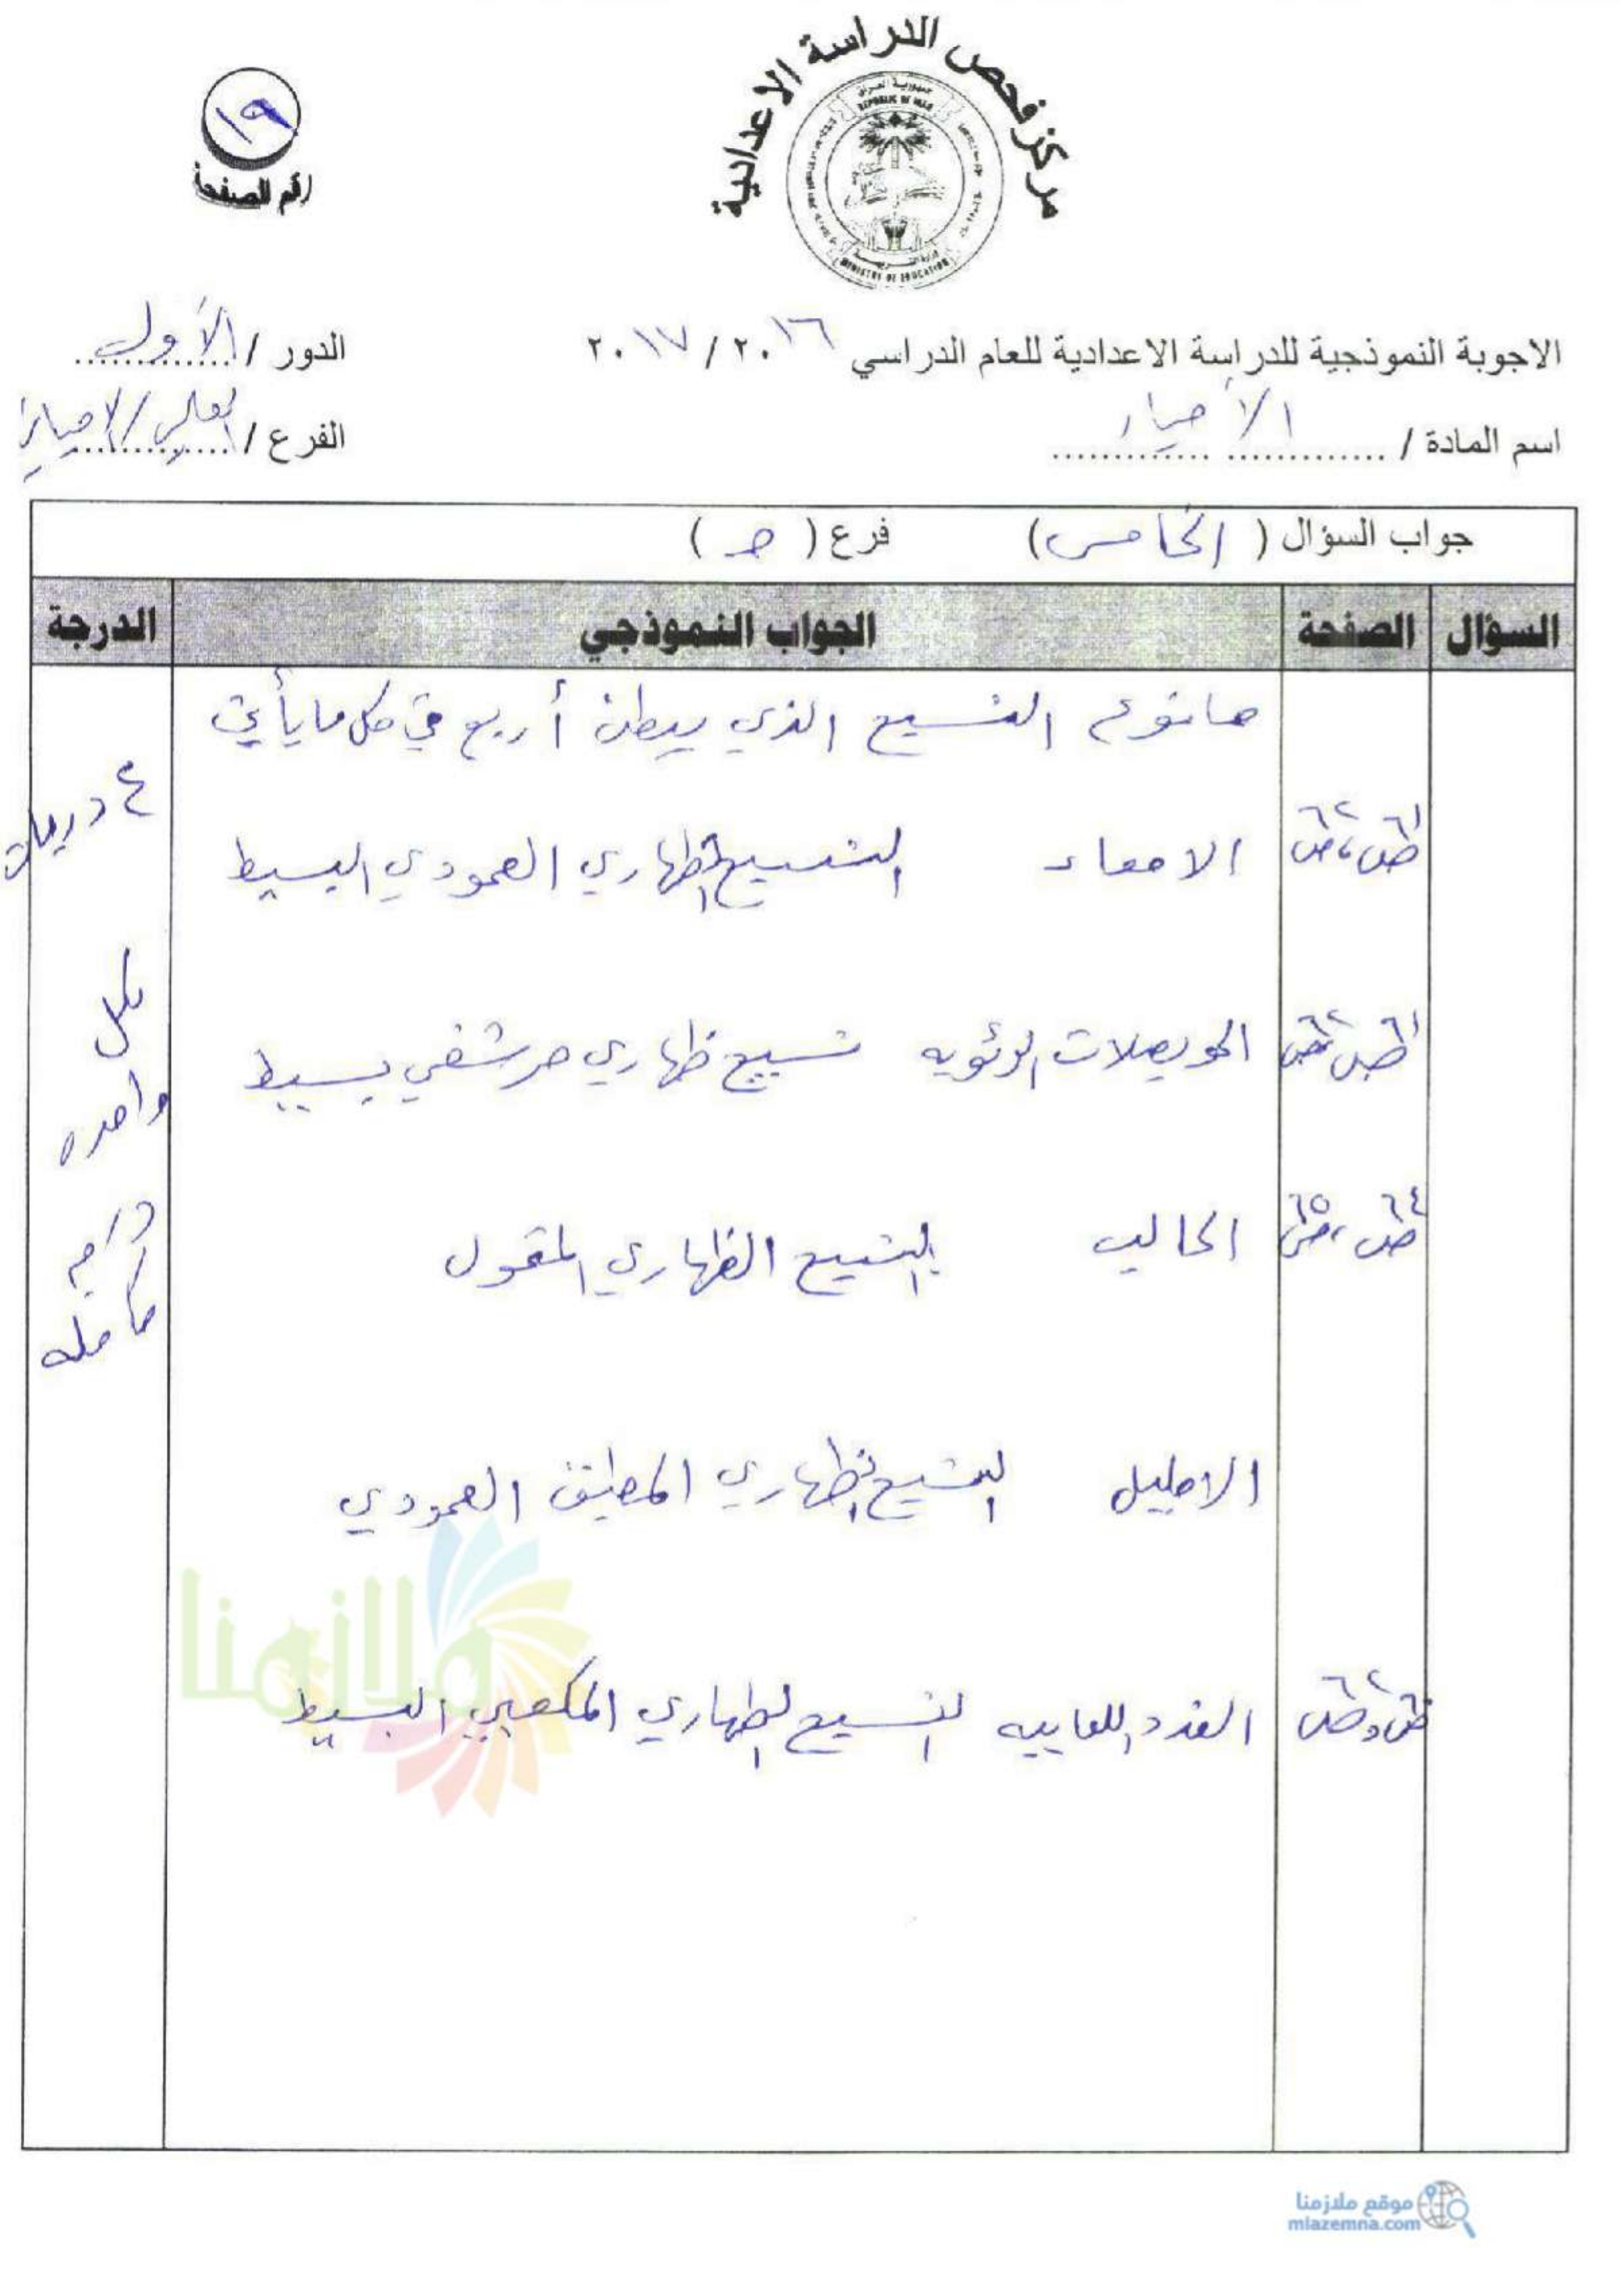 مركز فحص الدراسة الاعدادية
جمهورية العراق
REPUBLIC OF IRAQ
MINISTRY OF EDUCATION
١٩
رقم الصفحة
الاجوبة النموذجية للدراسة الاعدادية للعام الدراسي ٢٠١٦ / ٢٠١٧
الدور / الأول
اسم المادة / الأحياء
الفرع / العلمي / الاحيائي
جواب السؤال ( الخامس ) فرع ( حـ )
السؤال الصفحة الجواب النموذجي الدرجة
ما نوع النسيج الذي يبطن أربع في كل ما يأتي
٤ درجات
ص٦١ ، ص٦٢ الامعاء النسيج الظهاري العمودي البسيط
لكل
ص٦١ ص٦٢ الحويصلات الرئويه نسيج ظهاري حرشفي بسيط
واحده
ص٦٤ ، ص٦٥ الحالب النسيج الظهاري المتحول
درجه
كامله
الاحليل النسيج الظهاري المطبق العمودي
الغدد اللعابيه النسيج الظهاري المكعبي البسيط
ملازمنا
موقع ملازمنا
mlazemna.com